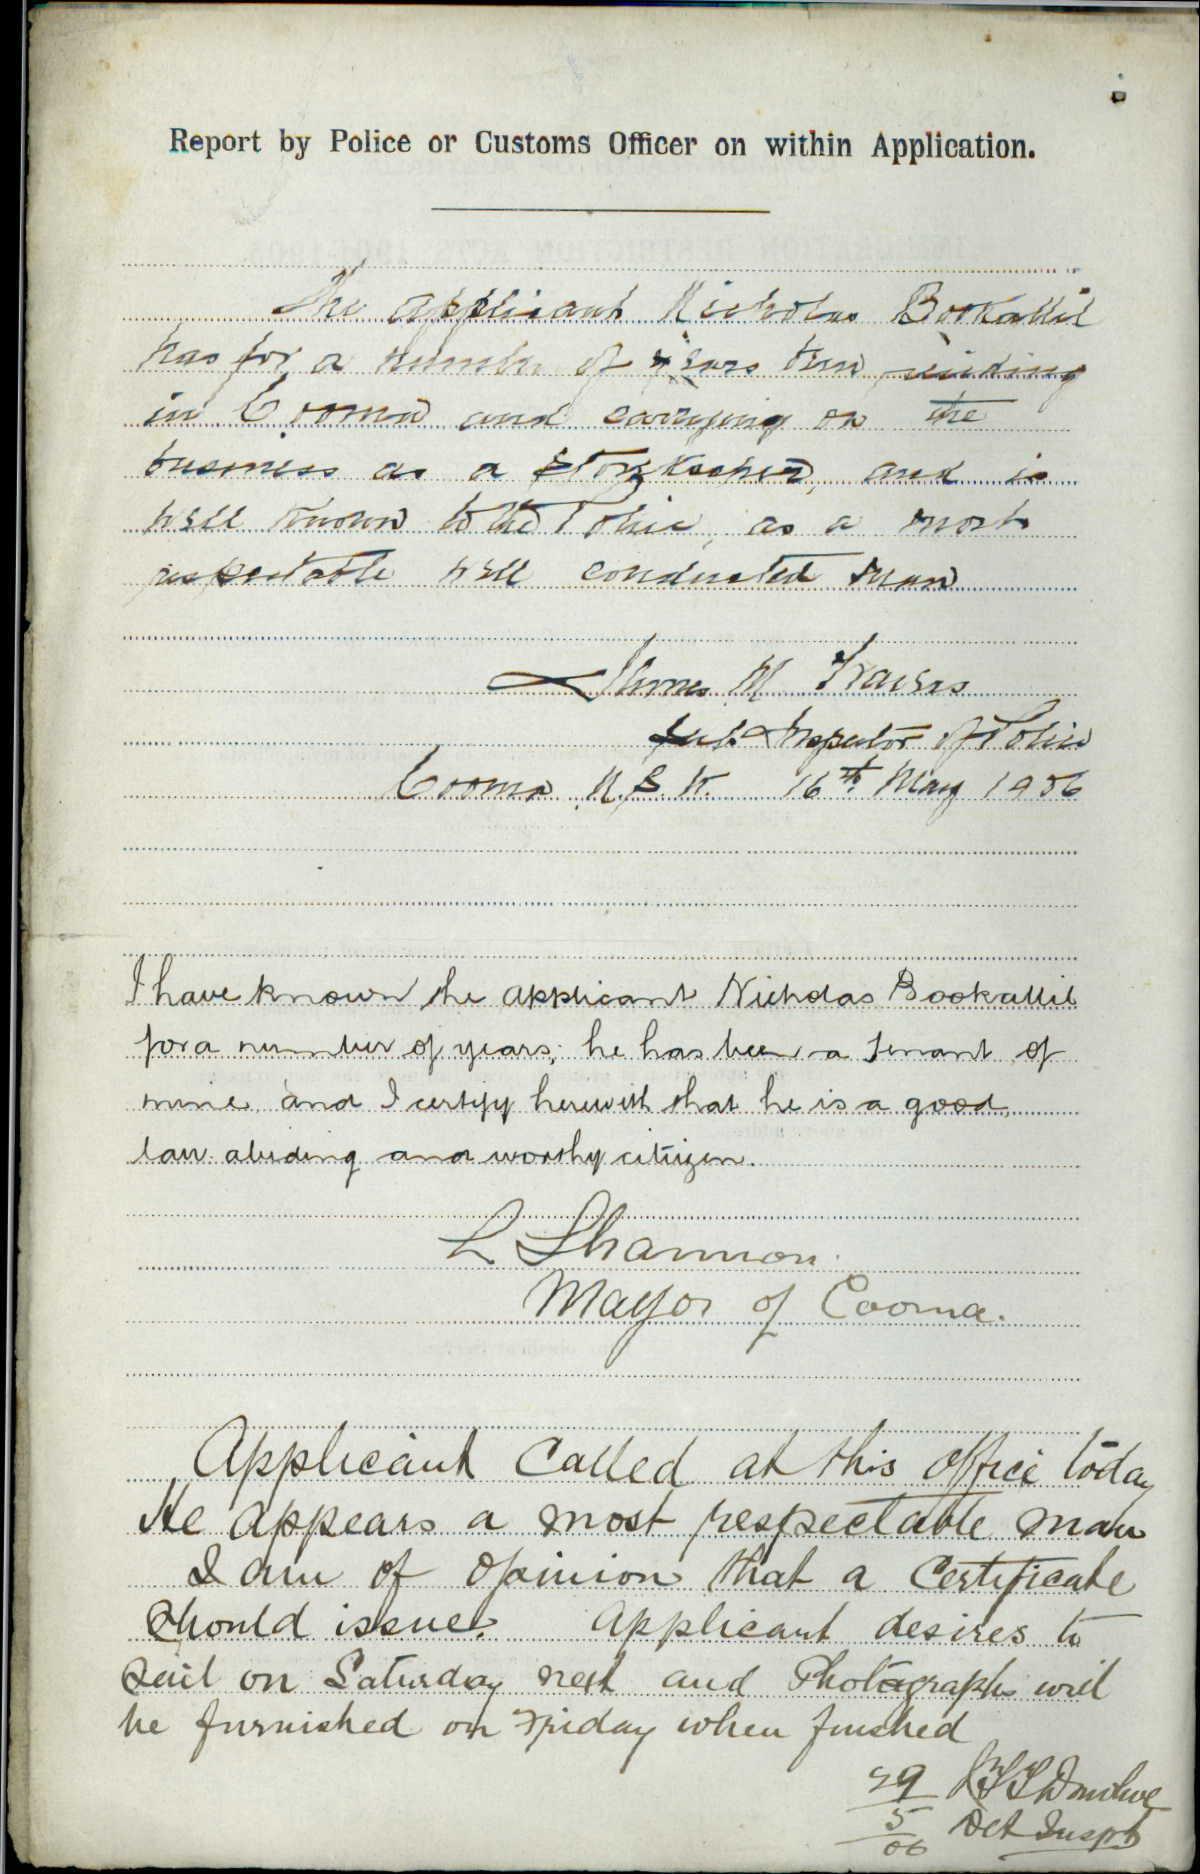 Report by Police or Customs Officer on within Application.
The applicant Nicholas Bookallil
has for a number of years been residing
in Cooma and carrying on the
business as a Storekeeper, and is
well known to the Police, as a most
respectable well conducted man
James M Travers
Sub Inspector of Police
Cooma N.S.W. 16th May 1906
I have known the applicant Nicholas Bookallil
for a number of years; he has been a tenant of
mine and I certify herewith that he is a good,
law abiding and worthy citizen.
L Shannon.
Mayor of Cooma.
Applicant called at this office today
He appears a most respectable man
I am of opinion that a Certificate
should issue. Applicant desires to
sail on Saturday next and Photographs will
be furnished on Friday when finished
29
5
06
Donohoe
Det Inspt